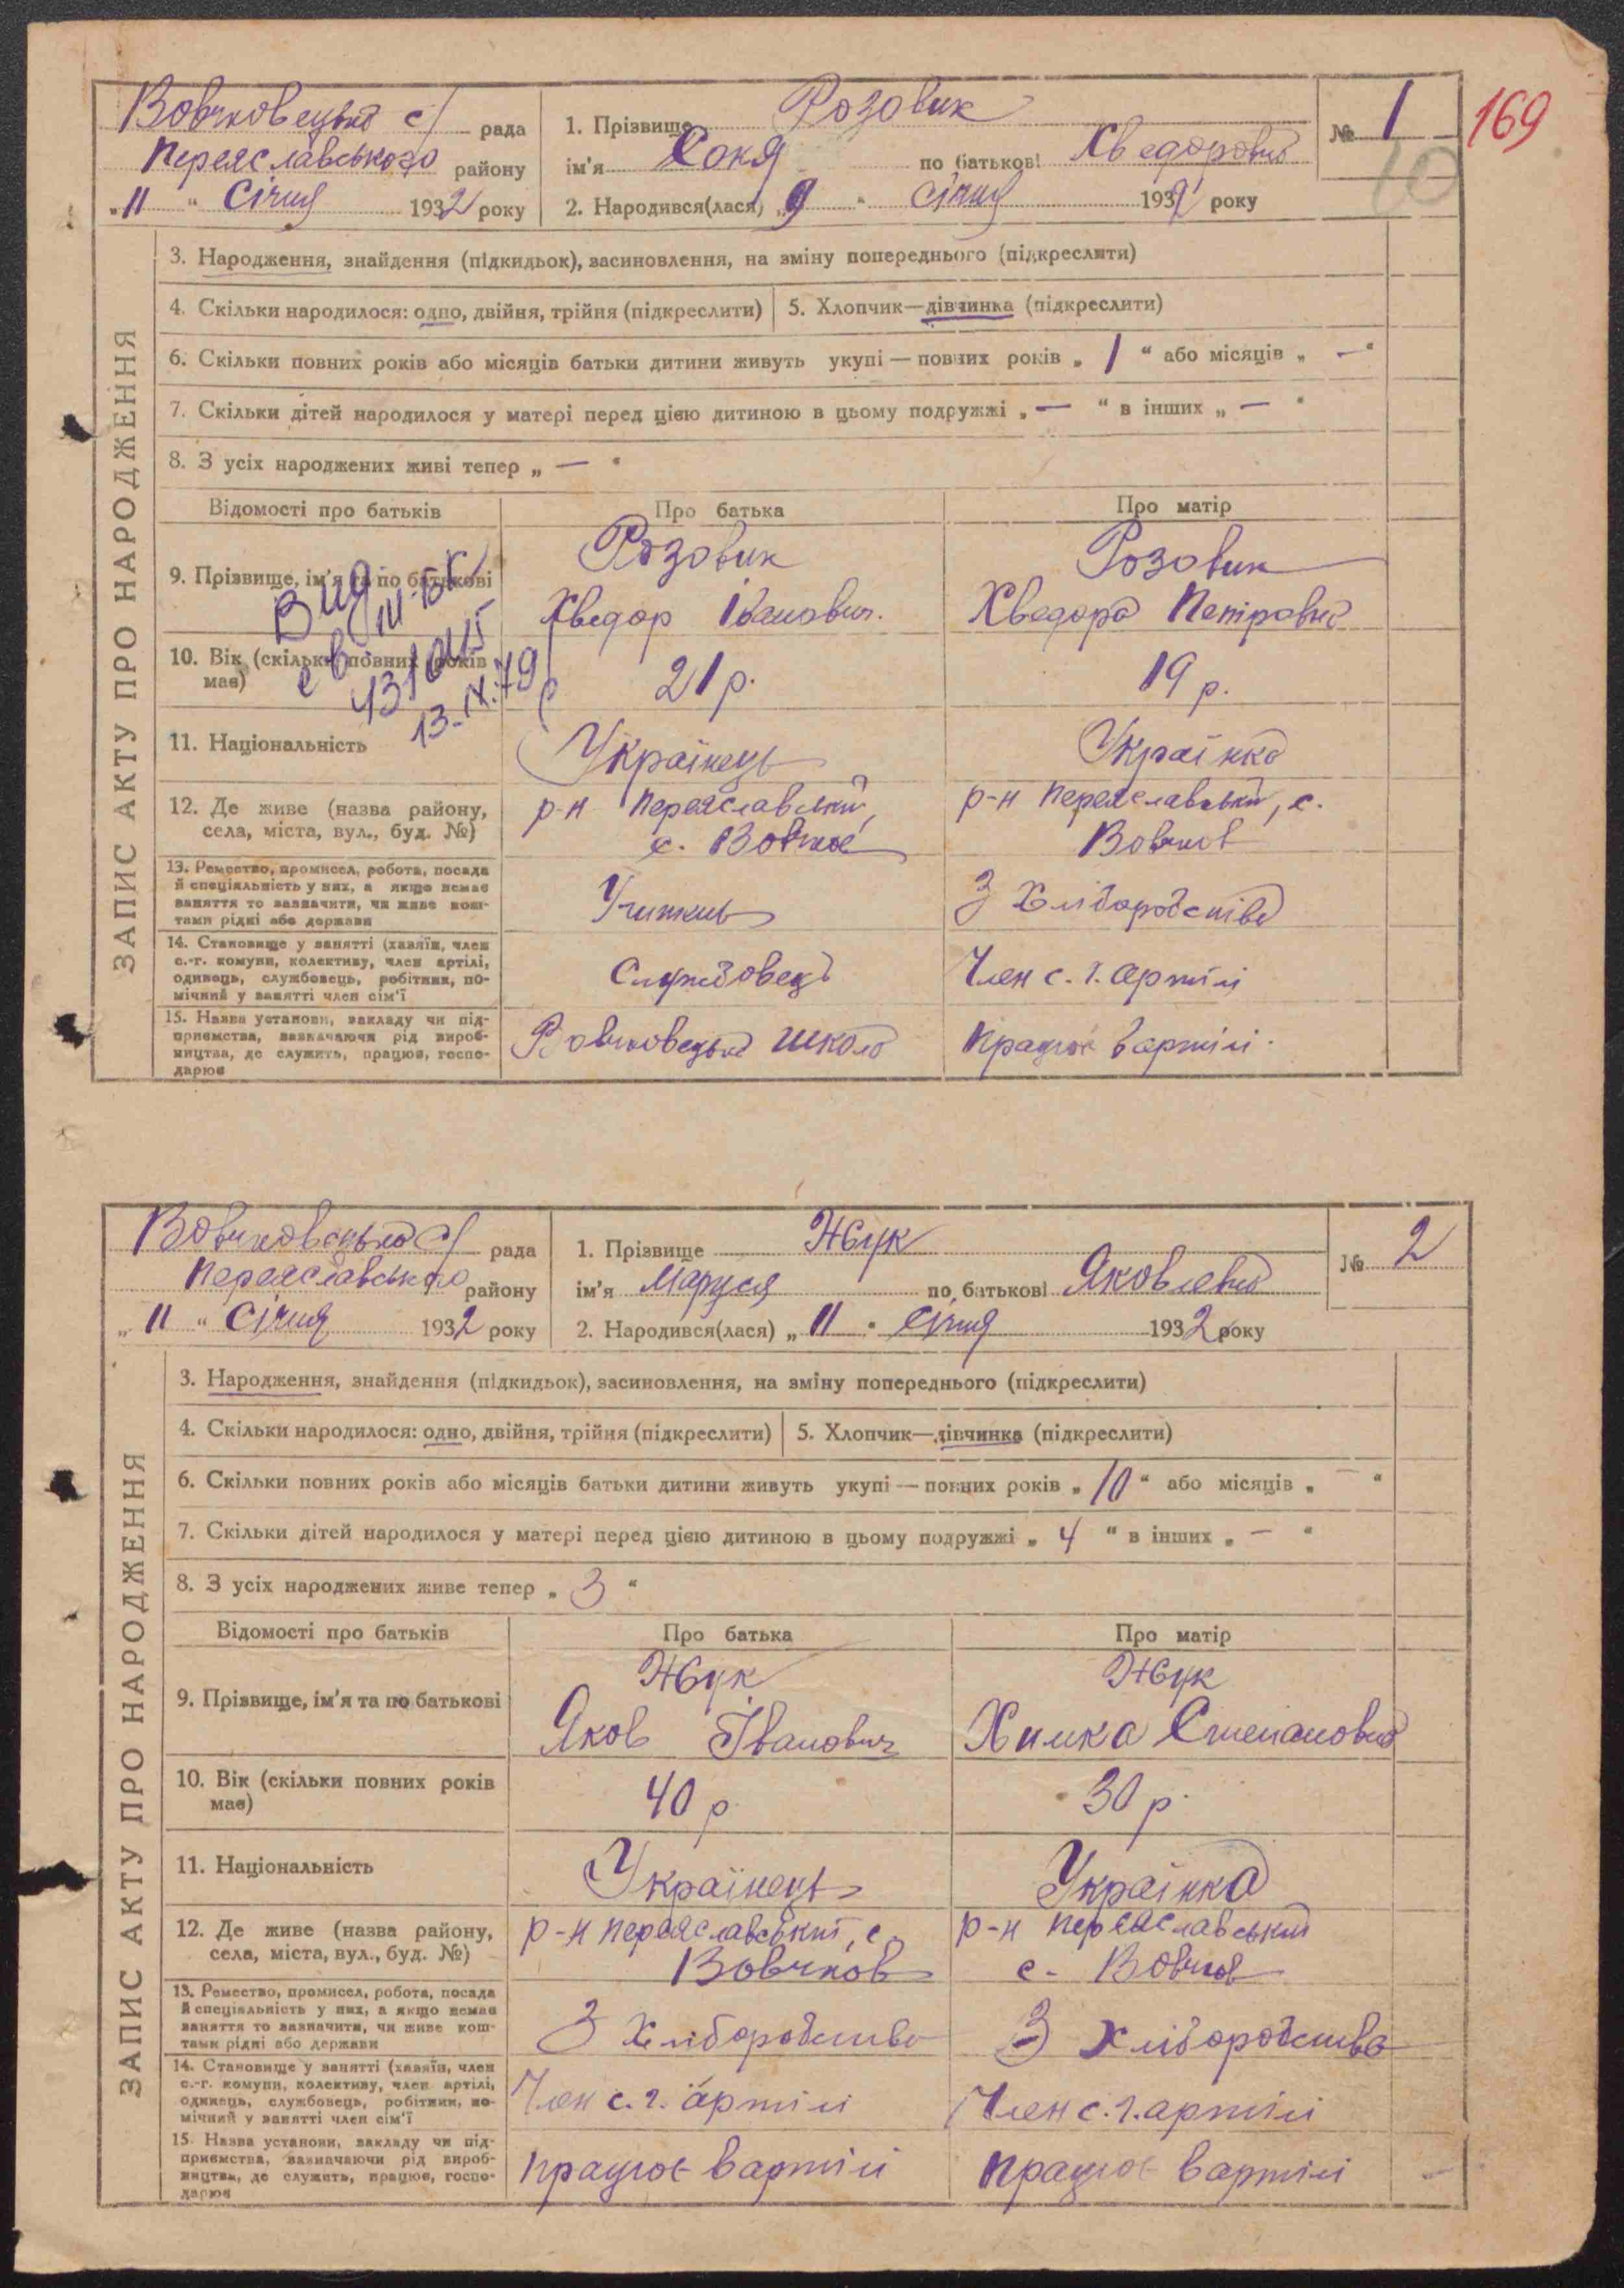 Вовчковецька с/ рада
Переяславського району
„11“ Січня 1932 року
1. Прізвище Розовик
ім'я Соня по батькові Хведоровна
2. Народився(лася) „9“ січня 1932 року
№ 1
169
10
ЗАПИС АКТУ ПРО НАРОДЖЕННЯ
3. Народження, знайдення (підкидьок), засиновлення, на зміну попереднього (підкреслити)
4. Скільки народилося: одно, двійня, трійня (підкреслити)
5. Хлопчик—дівчинка (підкреслити)
6. Скільки повних років або місяців батьки дитини живуть укупі — повних років „1“ або місяців „—“
7. Скільки дітей народилося у матері перед цією дитиною в цьому подружжі „—“ в інших „—“
8. З усіх народжених живі тепер „—“
Відомості про батьків
Про батька
Про матір
9. Прізвище, ім'я та по батькові
Розовик
Хведор Іванович.
Розовик
Хведора Петровна
13.IX.79
10. Вік (скільки повних років
має)
21 р.
19 р.
11. Національність
Українець
Українка
12. Де живе (назва району,
села, міста, вул., буд. №)
р-н Переяславський,
с. Вовчков
р-н Переяславський, с.
Вовчков
13. Ремество, промисел, робота, посада
й спеціяльність у них, а якщо немає
заняття то зазначити, чи живе кош-
тами рідні або держави
Учитель
З Хліборобства
14. Становище у занятті (хазяїн, член
с.-г. комуни, колективу, член артілі,
одинець, службовець, робітник, по-
мічний у занятті член сім'ї
Службовець
Член с. г. артілі
15. Назва установи, закладу чи під-
приємства, зазначаючи рід вироб-
ництва, де служить, працює, госпо-
дарює
Вовчковецька школа
Працює в артілі.
Вовчковецька с/ рада
Переяславського району
„11“ Січня 1932 року
1. Прізвище Жук
ім'я Маруся по батькові Яковлевна
2. Народився(лася) „11“ Січня 1932 року
№ 2
ЗАПИС АКТУ ПРО НАРОДЖЕННЯ
3. Народження, знайдення (підкидьок), засиновлення, на зміну попереднього (підкреслити)
4. Скільки народилося: одно, двійня, трійня (підкреслити)
5. Хлопчик—дівчинка (підкреслити)
6. Скільки повних років або місяців батьки дитини живуть укупі — повних років „10“ або місяців „—“
7. Скільки дітей народилося у матері перед цією дитиною в цьому подружжі „4“ в інших „—“
8. З усіх народжених живе тепер „3“
Відомості про батьків
Про батька
Про матір
9. Прізвище, ім'я та по батькові
Жук
Яков Іванович
Жук
Химка Степановна
10. Вік (скільки повних років
має)
40 р
30 р.
11. Національність
Українець
Українка
12. Де живе (назва району,
села, міста, вул., буд. №)
р-н Переяславський, с.
Вовчков
р-н Переяславський
с. Вовчков
13. Ремество, промисел, робота, посада
й спеціяльність у них, а якщо немає
заняття то зазначити, чи живе кош-
тами рідні або держави
З Хліборобства
З Хліборобства
14. Становище у занятті (хазяїн, член
с.-г. комуни, колективу, член артілі,
одинець, службовець, робітник, по-
мічний у занятті член сім'ї
Член с. г. артілі
Член с. г. артілі
15. Назва установи, закладу чи під-
приємства, зазначаючи рід вироб-
ництва, де служить, працює, госпо-
дарює
Працює в артілі
Працює в артілі